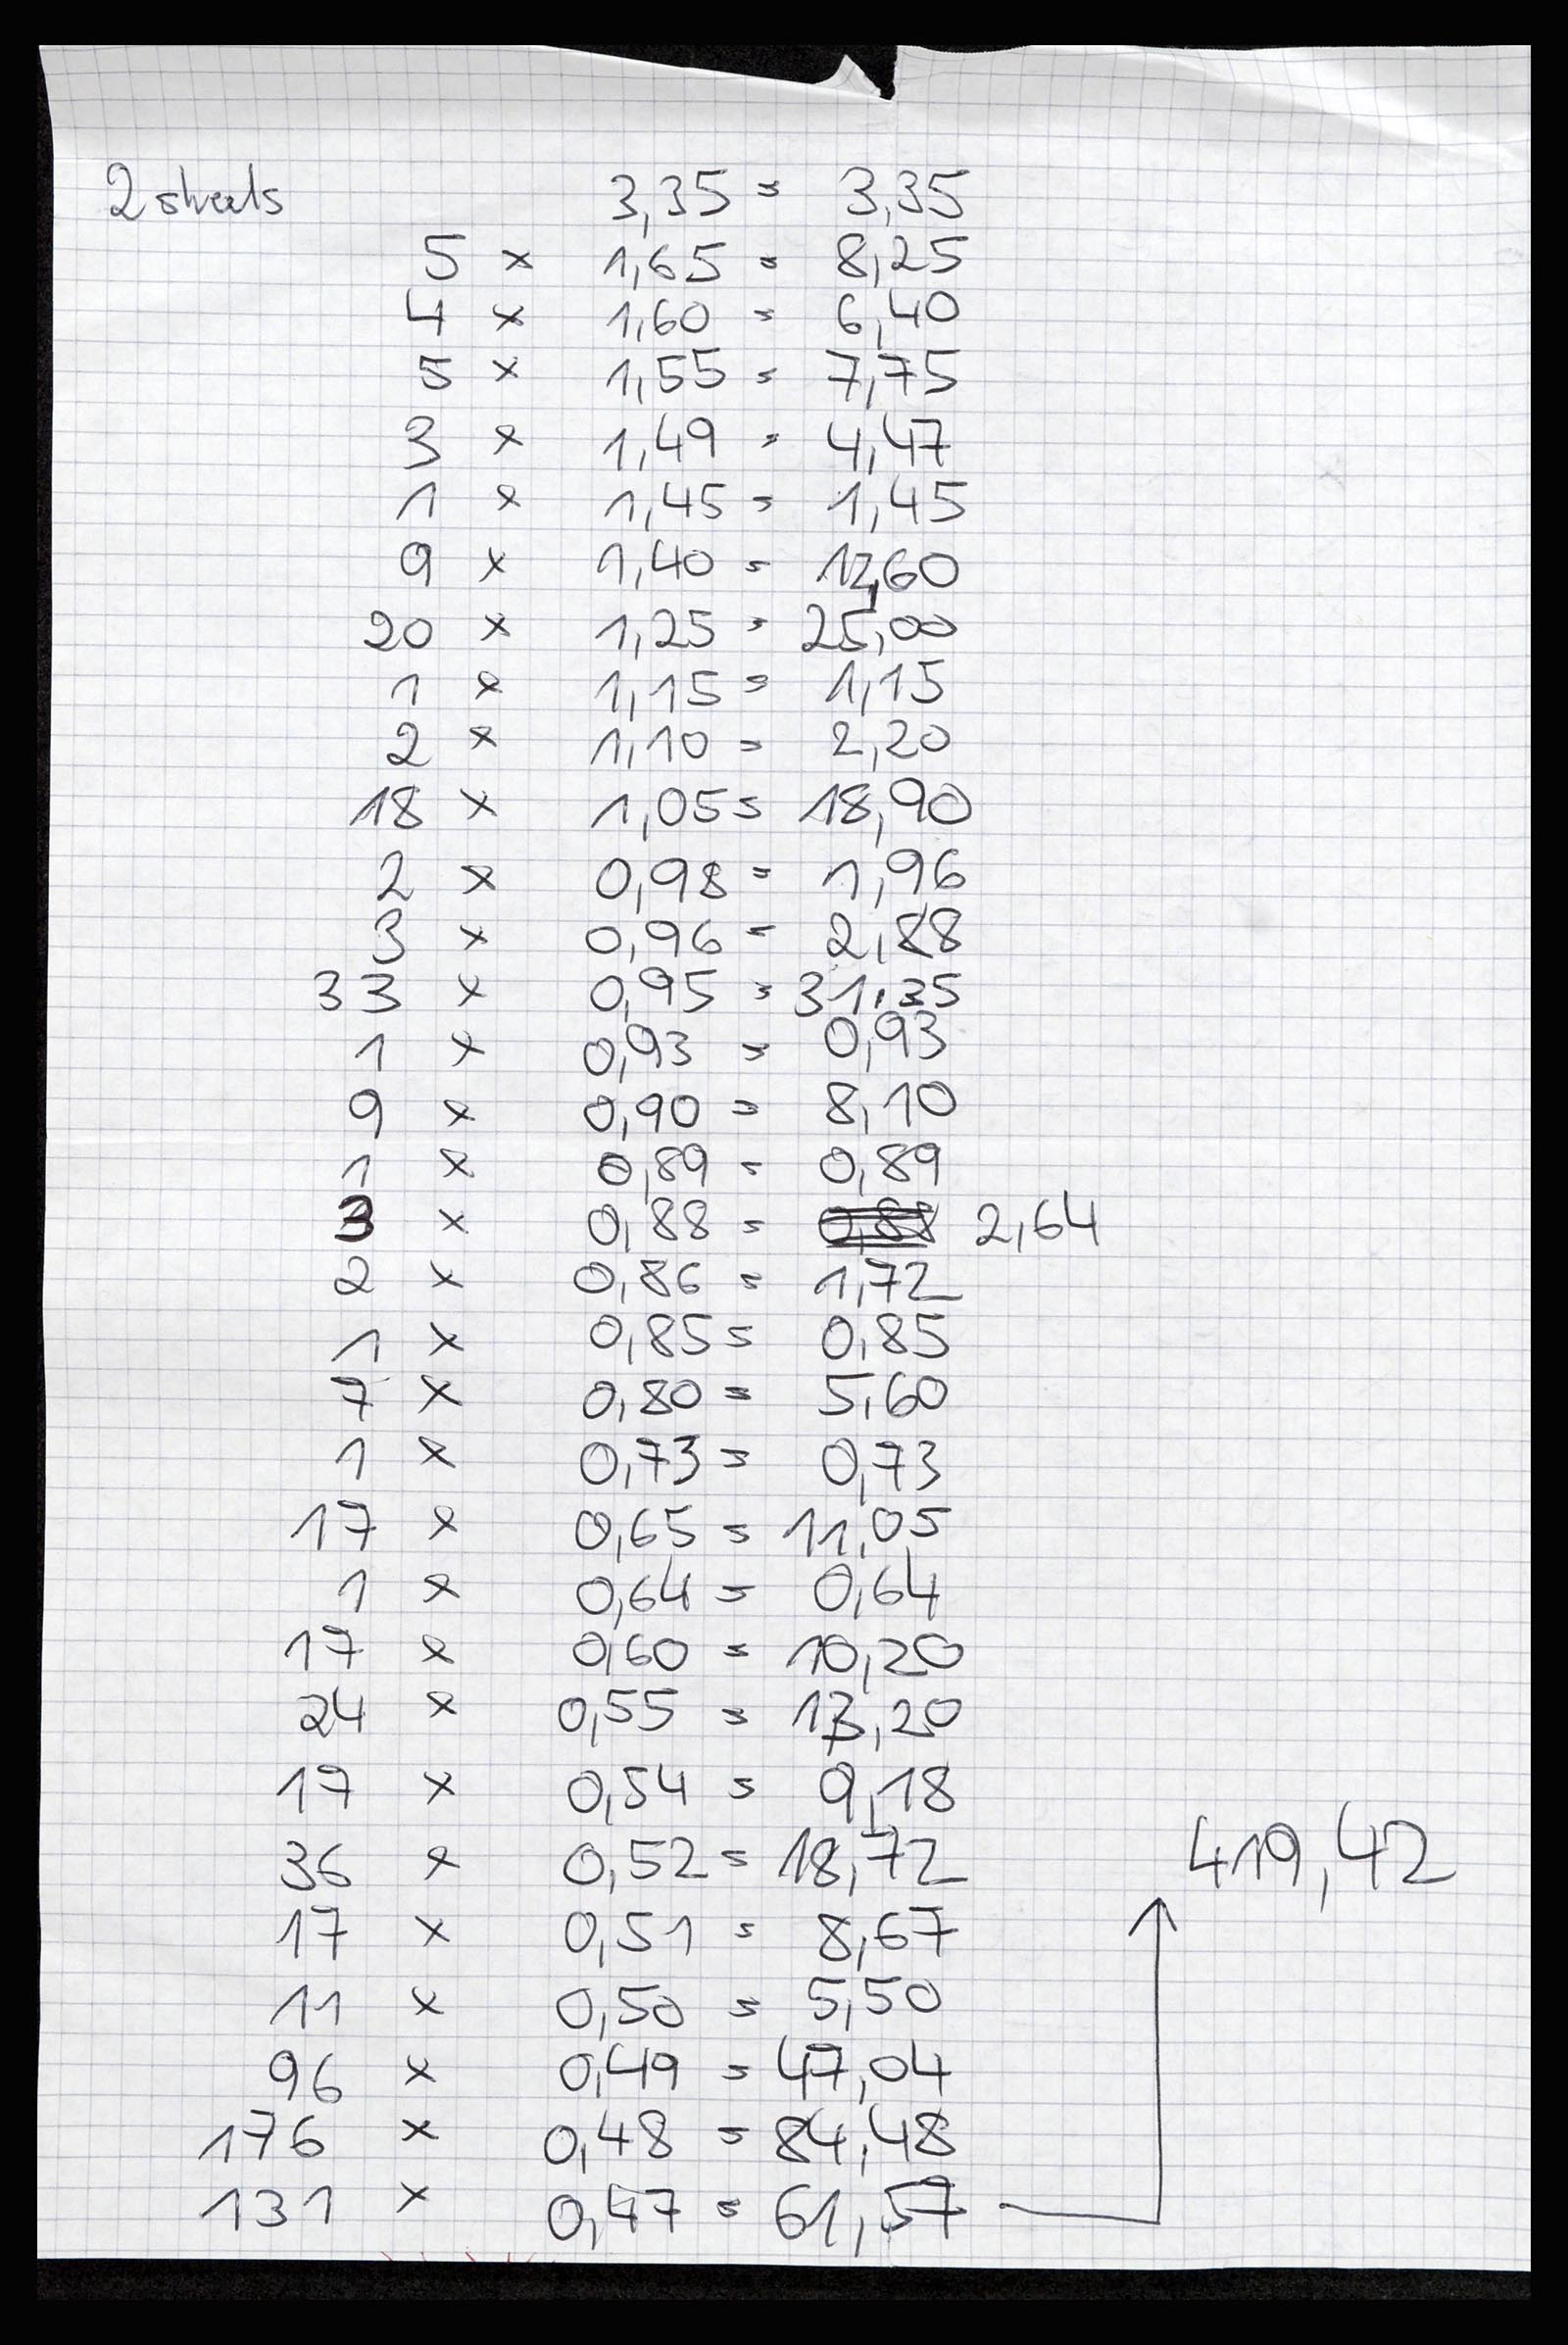 2 sheets 3,35 = 3,35
5 x 1,65 = 8,25
4 x 1,60 = 6,40
5 x 1,55 = 7,75
3 x 1,49 = 4,47
1 x 1,45 = 1,45
9 x 1,40 = 12,60
20 x 1,25 = 25,00
1 x 1,15 = 1,15
2 x 1,10 = 2,20
18 x 1,05 = 18,90
2 x 0,98 = 1,96
3 x 0,96 = 2,88
33 x 0,95 = 31,35
1 x 0,93 = 0,93
9 x 0,90 = 8,10
1 x 0,89 = 0,89
3 x 0,88 = 0,88 2,64
2 x 0,86 = 1,72
1 x 0,85 = 0,85
7 x 0,80 = 5,60
1 x 0,73 = 0,73
17 x 0,65 = 11,05
1 x 0,64 = 0,64
17 x 0,60 = 10,20
24 x 0,55 = 13,20
17 x 0,54 = 9,18
36 x 0,52 = 18,72
419,42
17 x 0,51 = 8,67
11 x 0,50 = 5,50
96 x 0,49 = 47,04
176 x 0,48 = 84,48
131 x 0,47 = 61,57